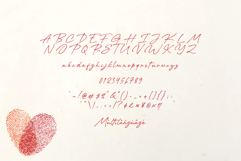 ABCDEFGHIJKLM
NOPQRSTUVWXYZ
abcdefghijklmnopqrstuvwxyz
0123456789
Multilanguage